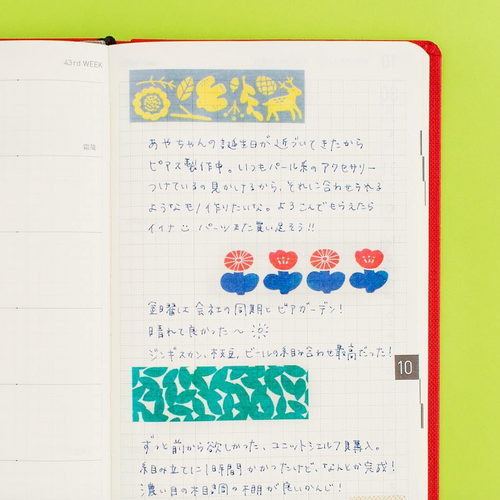 43rd WEEK
あやちゃんの誕生日が近づいてきたから
ピアス製作中。いつもパール系のアクセサリー
つけているの見かけるから、それに合わせられる
ようなモノ作りたいな。よろこんでもらえたら
イイナ パーツまた買い足そう!!
金曜は会社の同期とビアガーデン!
晴れて良かった〜
ジンギスカン、枝豆、ビールの組み合わせ最高だった!
10
ずっと前から欲しかった、ユニットシェルフ購入。
組み立てに1時間かかったけど、なんとか完成!
濃い目の木目調の棚が良いかんじ!